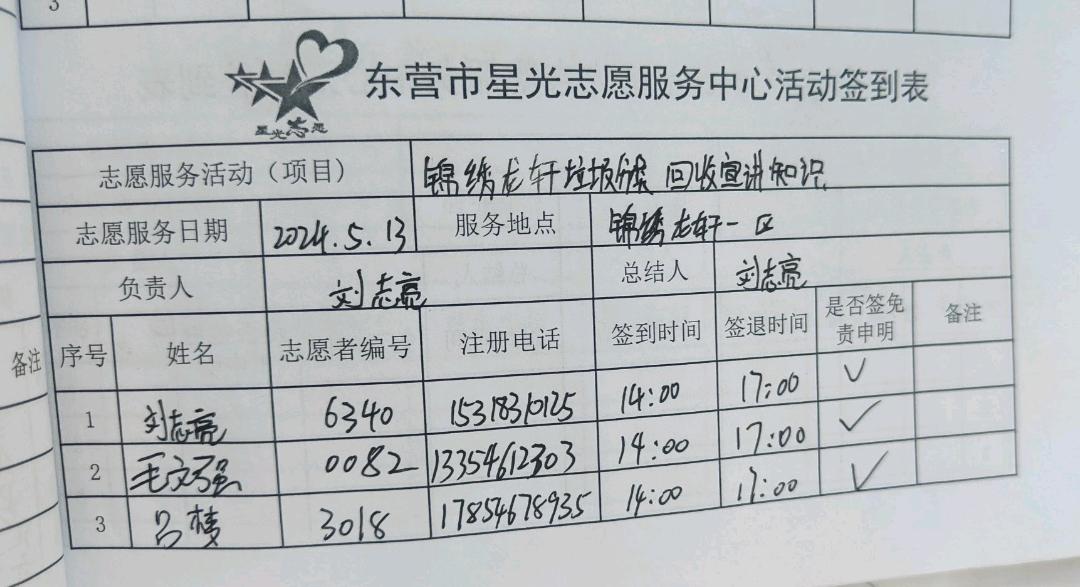 3
东营市星光志愿服务中心活动签到表
星光志愿
志愿服务活动（项目） 锦绣龙轩垃圾分类 回收宣讲知识
志愿服务日期 2024.5.13 服务地点 锦绣龙轩一区
负责人 刘志亮 总结人 刘志亮
备注
序号 姓名 志愿者编号 注册电话 签到时间 签退时间 是否签免责申明 备注
1 刘志亮 6340 15318310125 14:00 17:00 ✓
2 毛文强 0082 13354612303 14:00 17:00 ✓
3 吕梦 3018 17854678935 14:00 17:00 ✓